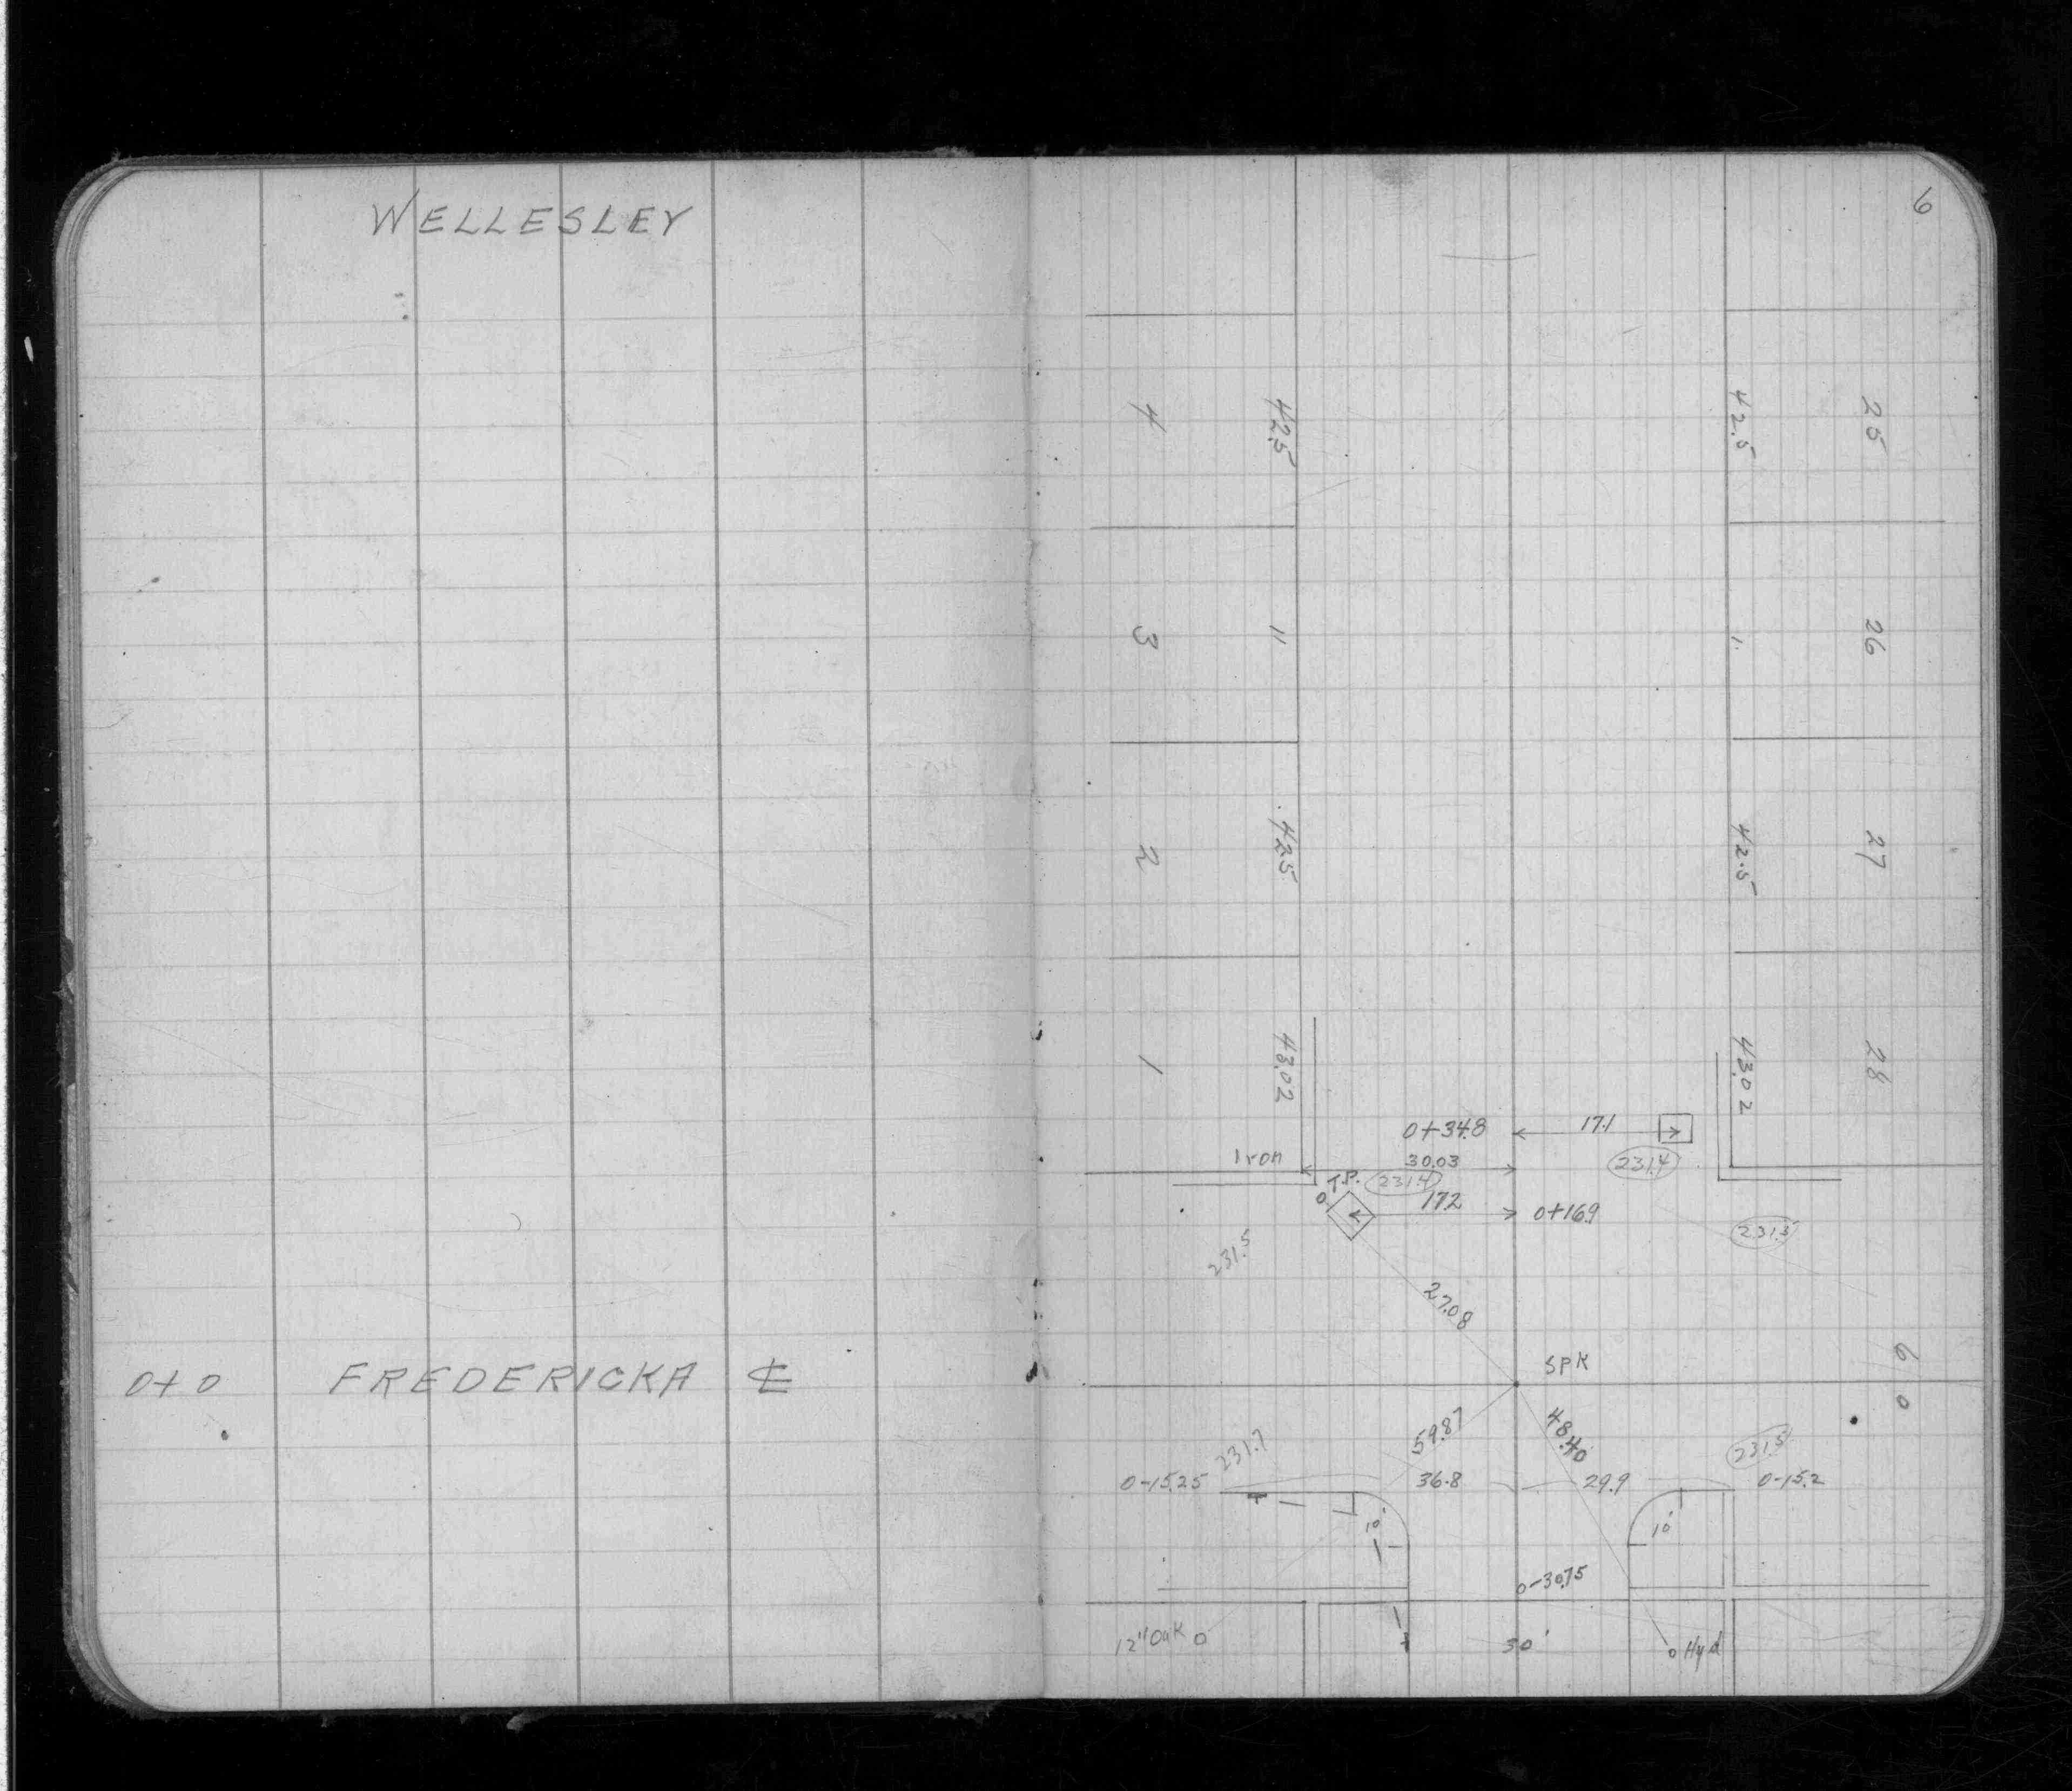 WELLESLEY
6
4 42.5 42.5 25
3 " " 26
2 42.5 42.5 27
1 43.02 43.02 28
0+34.8 17.1
Iron 30.03 231.4
T.P. 231.4
17.2 0+16.9
231.5 231.5
27.08
0+0 FREDERICKA ℄
SPK 60
59.87 48.40
231.7 231.5
0-15.25 36.8 29.9 0-15.2
10' 10'
0-30.75
12" Oak 30' Hyd